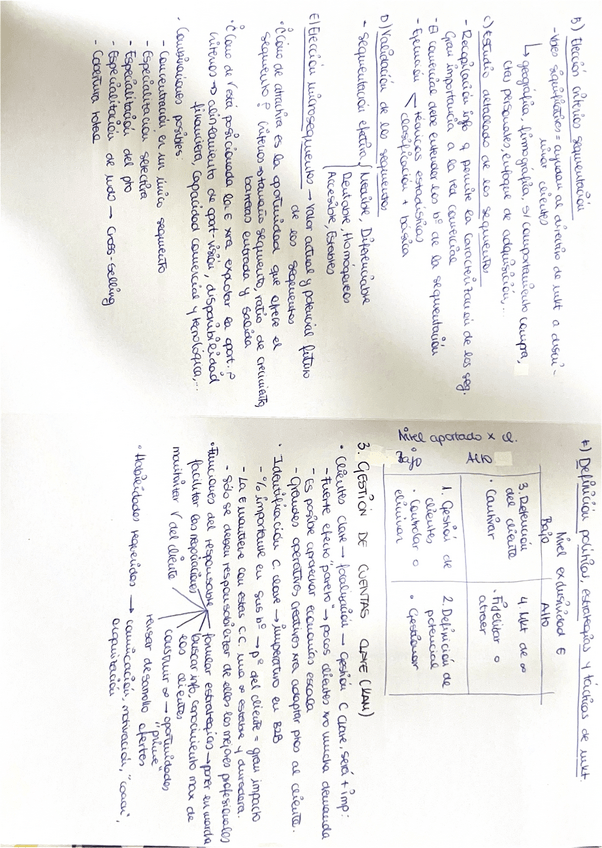 B) Elección criterios segmentación
- Vbles significativas = ayudan al directivo de mkt a discri-
minar clientes
↳ geográfica, firmográfica, s/ comportamiento compra,
ctas personales, enfoque de adquisición,...
C) Estudio detallado de los segmentos
- Recopilación info q permite la caracterización de los seg.
Gran importancia a la red comercial
- El comercial debe entender los bº de la segmentación
- Ejecución < técnicas estadísticas
clasificación + básica
D) Valoración de los segmentos
- Segmentación efectiva Medible, Diferenciable
Rentable, Homogéneos
Accesible, Estables
E) Elección microsegmentos → valor actual y potencial futuro
de los segmentos
• ¿Cómo de atractiva es la oportunidad que ofrece el
segmento? Criterios → tamaño segmento, ratio de crecimiento,
barreras entrada y salida
• ¿Cómo de bien posicionada la E xra explotar la oport.?
Criterios → alineamiento de oport-visión, disponibilidad
financiera, capacidad comercial y tecnológica,...
• Combinaciones posibles
- Concentración en un único segmento
- Especialización selectiva
- Especialización del pto
- Especialización de mdo → Cross-selling
- Cobertura total
F) Definición políticas, estrategias y tácticas de mkt.
Nivel exclusividad E
Bajo Alto
Nivel aportado x cl.
Alto
3. Retención del cliente
• Cautivar
4. Mkt de ∞
• Fidelizar o atraer
Bajo
1. Gestión de clientes
• Controlar o eliminar
2. Definición de potencial
• Gestionar
3. GESTIÓN DE CUENTAS CLAVE (KAM)
• Clientes clave → focalización → Gestión C Clave, será + imp:
- Fuerte efecto "pareto" → pocos clientes xro mucha demanda
- Es posible aprovechar economías escala
- Grandes operativos, creativos xra adaptar ptos al cliente.
• Identificación C clave → imperativo en B2B
- % importante en sus bº → pº del cliente = gran impacto
- La E mantiene con estas C.C. una ∞ estable y duradera.
- Sólo se deben responsabilizar de ellos los mejores profesionales
• Funciones del responsable → formular estrategias → poner en marcha
facilitar las negociaciones
buscar info, conocimiento max de
los clientes
construir ∞ → oportunidades
"prime"
monitorizar V del cliente
revisar desarrollo ofertas
• Habilidades requeridas → comunicación, motivación, "coach",
organización